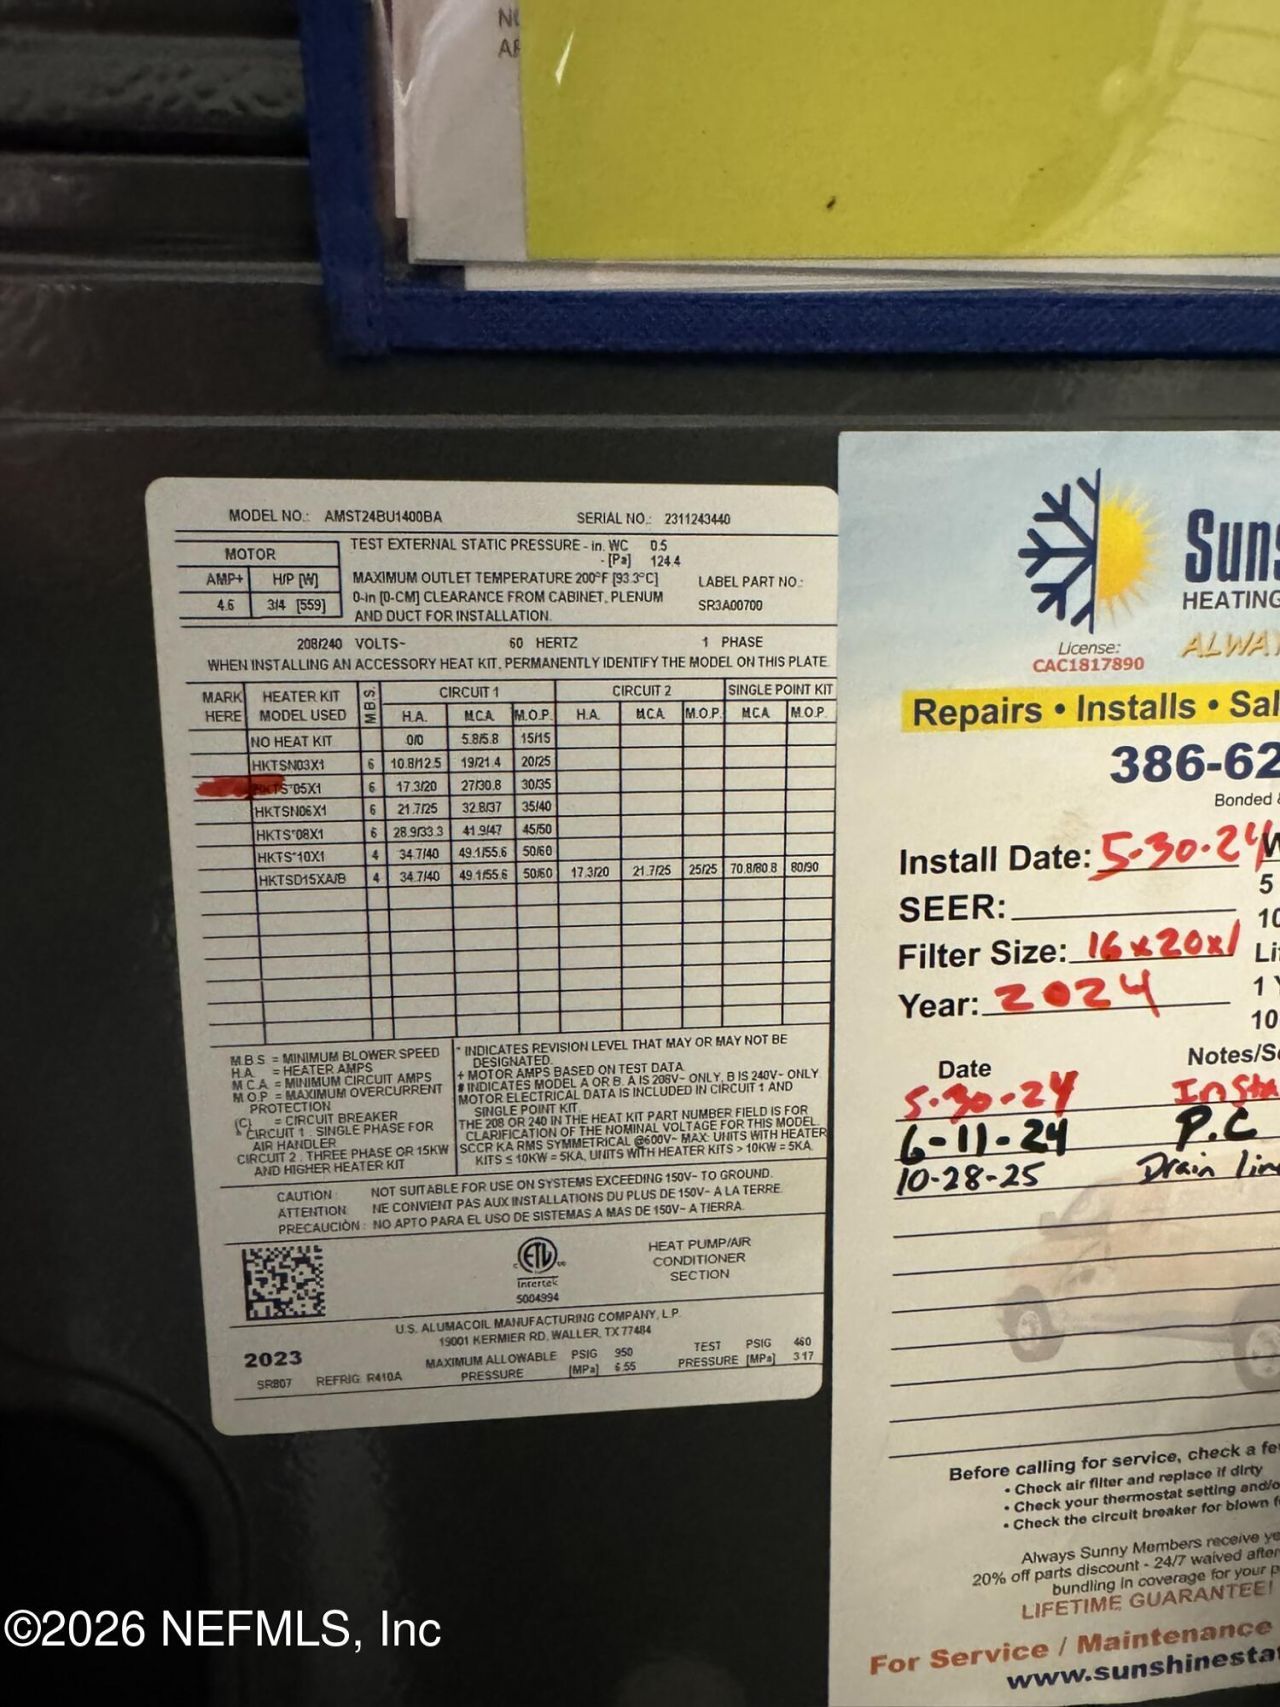 MODEL NO.: AMST24BU1400BA SERIAL NO.: 2311243440
MOTOR
AMP+ H/P [W]
4.6 3/4 [559]
TEST EXTERNAL STATIC PRESSURE - in. WC 0.5
- [Pa] 124.4
MAXIMUM OUTLET TEMPERATURE 200°F [93.3°C]
0-in [0-CM] CLEARANCE FROM CABINET, PLENUM
AND DUCT FOR INSTALLATION.
LABEL PART NO.:
SR3A00700
208/240 VOLTS~ 60 HERTZ 1 PHASE
WHEN INSTALLING AN ACCESSORY HEAT KIT, PERMANENTLY IDENTIFY THE MODEL ON THIS PLATE
MARK HERE HEATER KIT MODEL USED M B S CIRCUIT 1 CIRCUIT 2 SINGLE POINT KIT
H.A. M.C.A. M.O.P. H.A. M.C.A. M.O.P. M.C.A. M.O.P.
NO HEAT KIT 0/0 5.8/5.8 15/15
HKTSN03X1 6 10.8/12.5 19/21.4 20/25
HKTS*05X1 6 17.3/20 27/30.8 30/35
HKTSN06X1 6 21.7/25 32.8/37 35/40
HKTS*08X1 6 28.9/33.3 41.9/47 45/50
HKTS*10X1 4 34.7/40 49.1/55.6 50/60
HKTSD15XA/B 4 34.7/40 49.1/55.6 50/60 17.3/20 21.7/25 25/25 70.8/80.8 80/90
M.B.S = MINIMUM BLOWER SPEED
H.A. = HEATER AMPS
M.C.A = MINIMUM CIRCUIT AMPS
M.O.P = MAXIMUM OVERCURRENT
PROTECTION
(C) = CIRCUIT BREAKER
* CIRCUIT 1 : SINGLE PHASE FOR
AIR HANDLER
CIRCUIT 2 : THREE PHASE OR 15KW
AND HIGHER HEATER KIT
* INDICATES REVISION LEVEL THAT MAY OR MAY NOT BE
DESIGNATED.
+ MOTOR AMPS BASED ON TEST DATA.
# INDICATES MODEL A OR B. A IS 208V~ ONLY, B IS 240V~ ONLY
MOTOR ELECTRICAL DATA IS INCLUDED IN CIRCUIT 1 AND
SINGLE POINT KIT.
THE 208 OR 240 IN THE HEAT KIT PART NUMBER FIELD IS FOR
CLARIFICATION OF THE NOMINAL VOLTAGE FOR THIS MODEL.
SCCR KA RMS SYMMETRICAL @600V~ MAX: UNITS WITH HEATER
KITS ≤ 10KW = 5KA, UNITS WITH HEATER KITS > 10KW = 5KA.
CAUTION : NOT SUITABLE FOR USE ON SYSTEMS EXCEEDING 150V~ TO GROUND.
ATTENTION : NE CONVIENT PAS AUX INSTALLATIONS DU PLUS DE 150V~ A LA TERRE.
PRECAUCIÒN : NO APTO PARA EL USO DE SISTEMAS A MAS DE 150V~ A TIERRA.
ETL
Intertek
5004994
HEAT PUMP/AIR
CONDITIONER
SECTION
U.S. ALUMACOIL MANUFACTURING COMPANY, L.P.
19001 KERMIER RD, WALLER, TX 77484
2023
SR807 REFRIG R410A
MAXIMUM ALLOWABLE PRESSURE PSIG 950 [MPa] 6.55
TEST PRESSURE PSIG 460 [MPa] 3.17
Suns
HEATING
ALWAY
License:
CAC1817890
Repairs • Installs • Sal
386-62
Bonded
Install Date: 5-30-24
SEER:
Filter Size: 16x20x1
Year: 2024
5
10
1 Y
10
Date Notes/Se
5-30-24 Insta
6-11-24 P.C
10-28-25 Drain line
Before calling for service, check a fe
• Check air filter and replace if dirty
• Check your thermostat setting and/o
• Check the circuit breaker for blown f
Always Sunny Members receive ye
20% off parts discount - 24/7 waived after
bundling in coverage for your p
LIFETIME GUARANTEE!
For Service / Maintenance
www.sunshinestat
©2026 NEFMLS, Inc